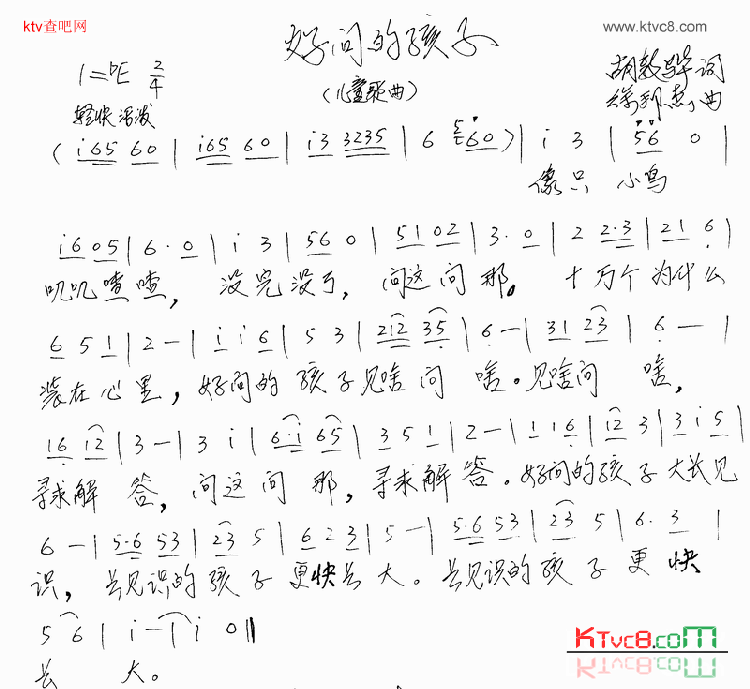 ktv查吧网
www.ktvc8.com
好问的孩子
1=♭E 2/4
(儿童歌曲)
胡敦骅 词
曲
轻快 活泼
( i65 60 | i65 60 | i3 3235 | 6 60 ) | i 3 | 56 0 |
像只 小鸟
i605 | 6·0 | i 3 | 56 0 | 51 02 | 3·0 | 2 2·3 | 21 6 |
叽叽喳喳, 没完没了, 问这问那。 十万个为什么
6 5 1 | 2 - | i i6 | 5 3 | 212 35 | 6 - | 31 23 | 6 - |
装在心里, 好问的孩子见啥问啥。见啥问 啥,
16 12 | 3 - | 3 i | 6·i 65 | 3 5 1 | 2 - | 1 16 | 12 3 | 3 i 5 |
寻求解 答, 问这问 那, 寻求解 答。好问的孩子大长见
6 - | 5·6 53 | 23 5 | 6 2 3 | 5 - | 5·6 53 | 23 5 | 6·3 |
识, 长见识的孩子更快长大。长见识的孩子更快
5 6 | i - | i 0 ‖
长 大。
KTvc8.com